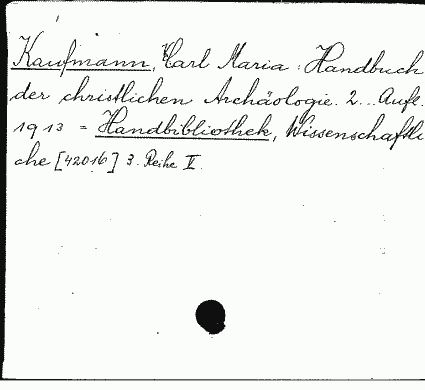 Kaufmann, Carl Maria: Handbuch
der christlichen Archäologie. 2... Aufl.
1913 = Handbibliothek, Wissenschaftli
che [42016] 3. Reihe V.